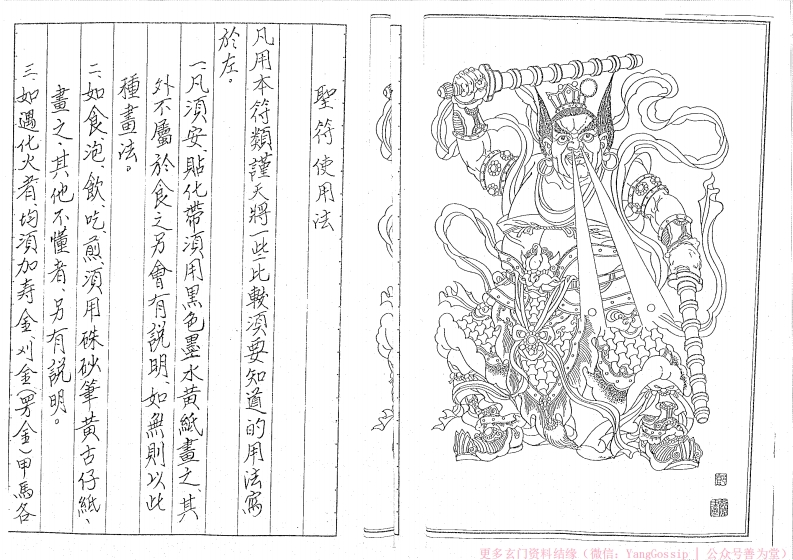 聖符使用法
凡用本符類謹天將一些比較須要知道的用法寫
於左。
一、凡須安、貼化帶須用黑色墨水黃紙畫之、其
外不屬於食之另會有說明、如無則以此
種畫法。
二、如食泡、飲吃、煎須用硃砂筆黃古仔紙、
畫之、其他不懂者、另有說明。
三、如遇化火者、均須加寿金刈金(男金)甲馬各
更多玄门资料结缘（微信：YangGossip | 公众号善为堂）